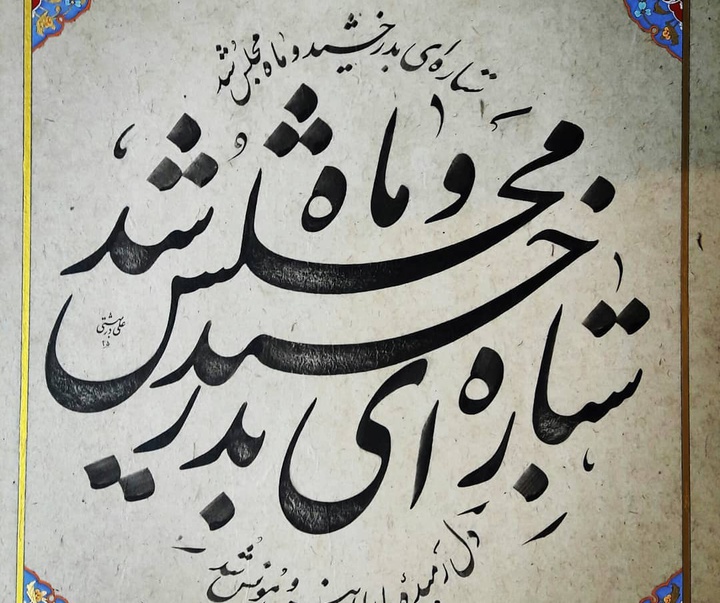 ستاره‌ای بدرخشید و ماه مجلس شد
ستاره‌ای بدرخشید و ماه مجلس شد
دل رمیدهٔ ما را انیس و مونس شد